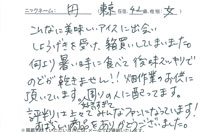 ニックネーム: 円 様 性別: 女
こんなに美味しいアイスに出会い
しょうげきを受け、箱買いしてしまいました。
何より暑い時に食べて後味スッキリで
のどが乾きません!!畑作業のお供に
頂いています。周りの人に配ってます。
評判は上々でみんなファンになっています!
ありがとうございました。